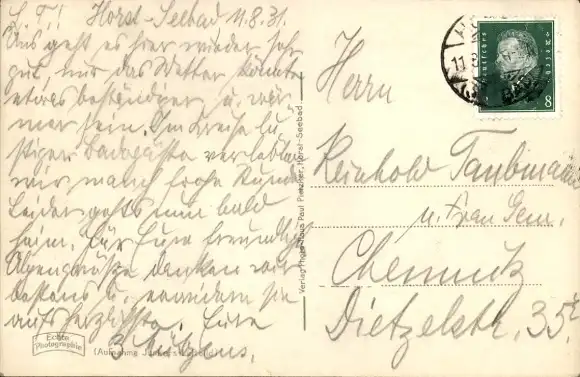 L. T.! Horst-Seebad 11.8.31.
Uns geht es hier wieder sehr
gut, nur das Wetter könnte
etwas beständiger u. wär-
mer sein. Im Kreise lu-
stiger Badegäste verleben
wir manch frohe Stunde.
Leider gehts nun bald
heim. Für Eure freundlich
Alpengrüße danken wir
bestens u. erwidern sie
aufs herzlichste. Eure
3
Echte
Photographie
(Aufnahme
Verlag Paul Horst-Seebad
11
Deutsches Reich
8
Herrn
Reinhold Taubmann
u. Frau Gem.
Chemnitz
Dietzelstr. 35